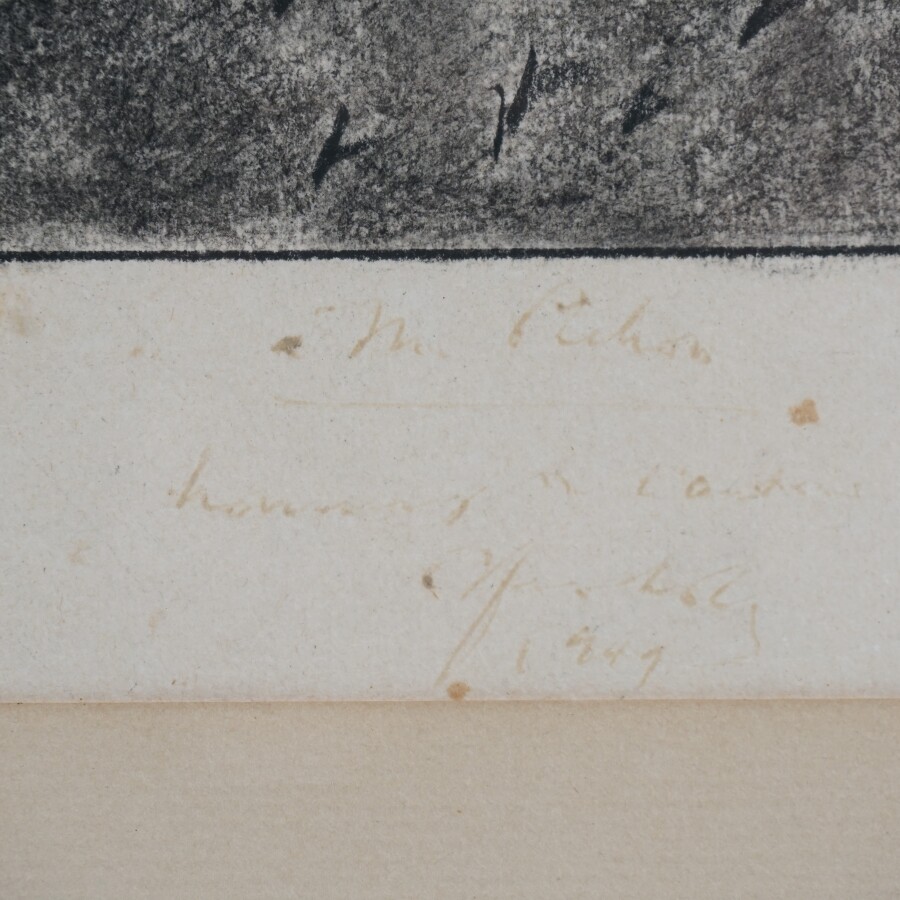 à M. Pichon
hommage de l'auteur
1849